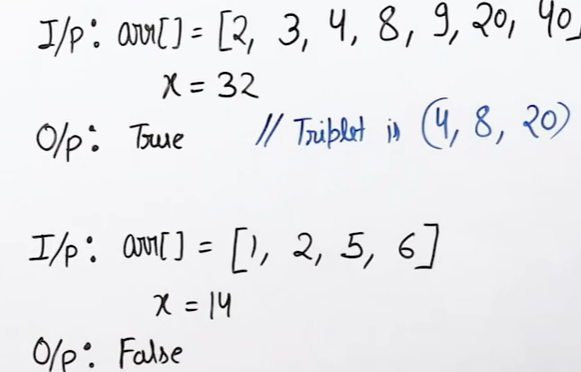 I/p: arr[] = [2, 3, 4, 8, 9, 20, 40]
x = 32
O/p: True // Triplet is (4, 8, 20)
I/p: arr[] = [1, 2, 5, 6]
x = 14
O/p: False